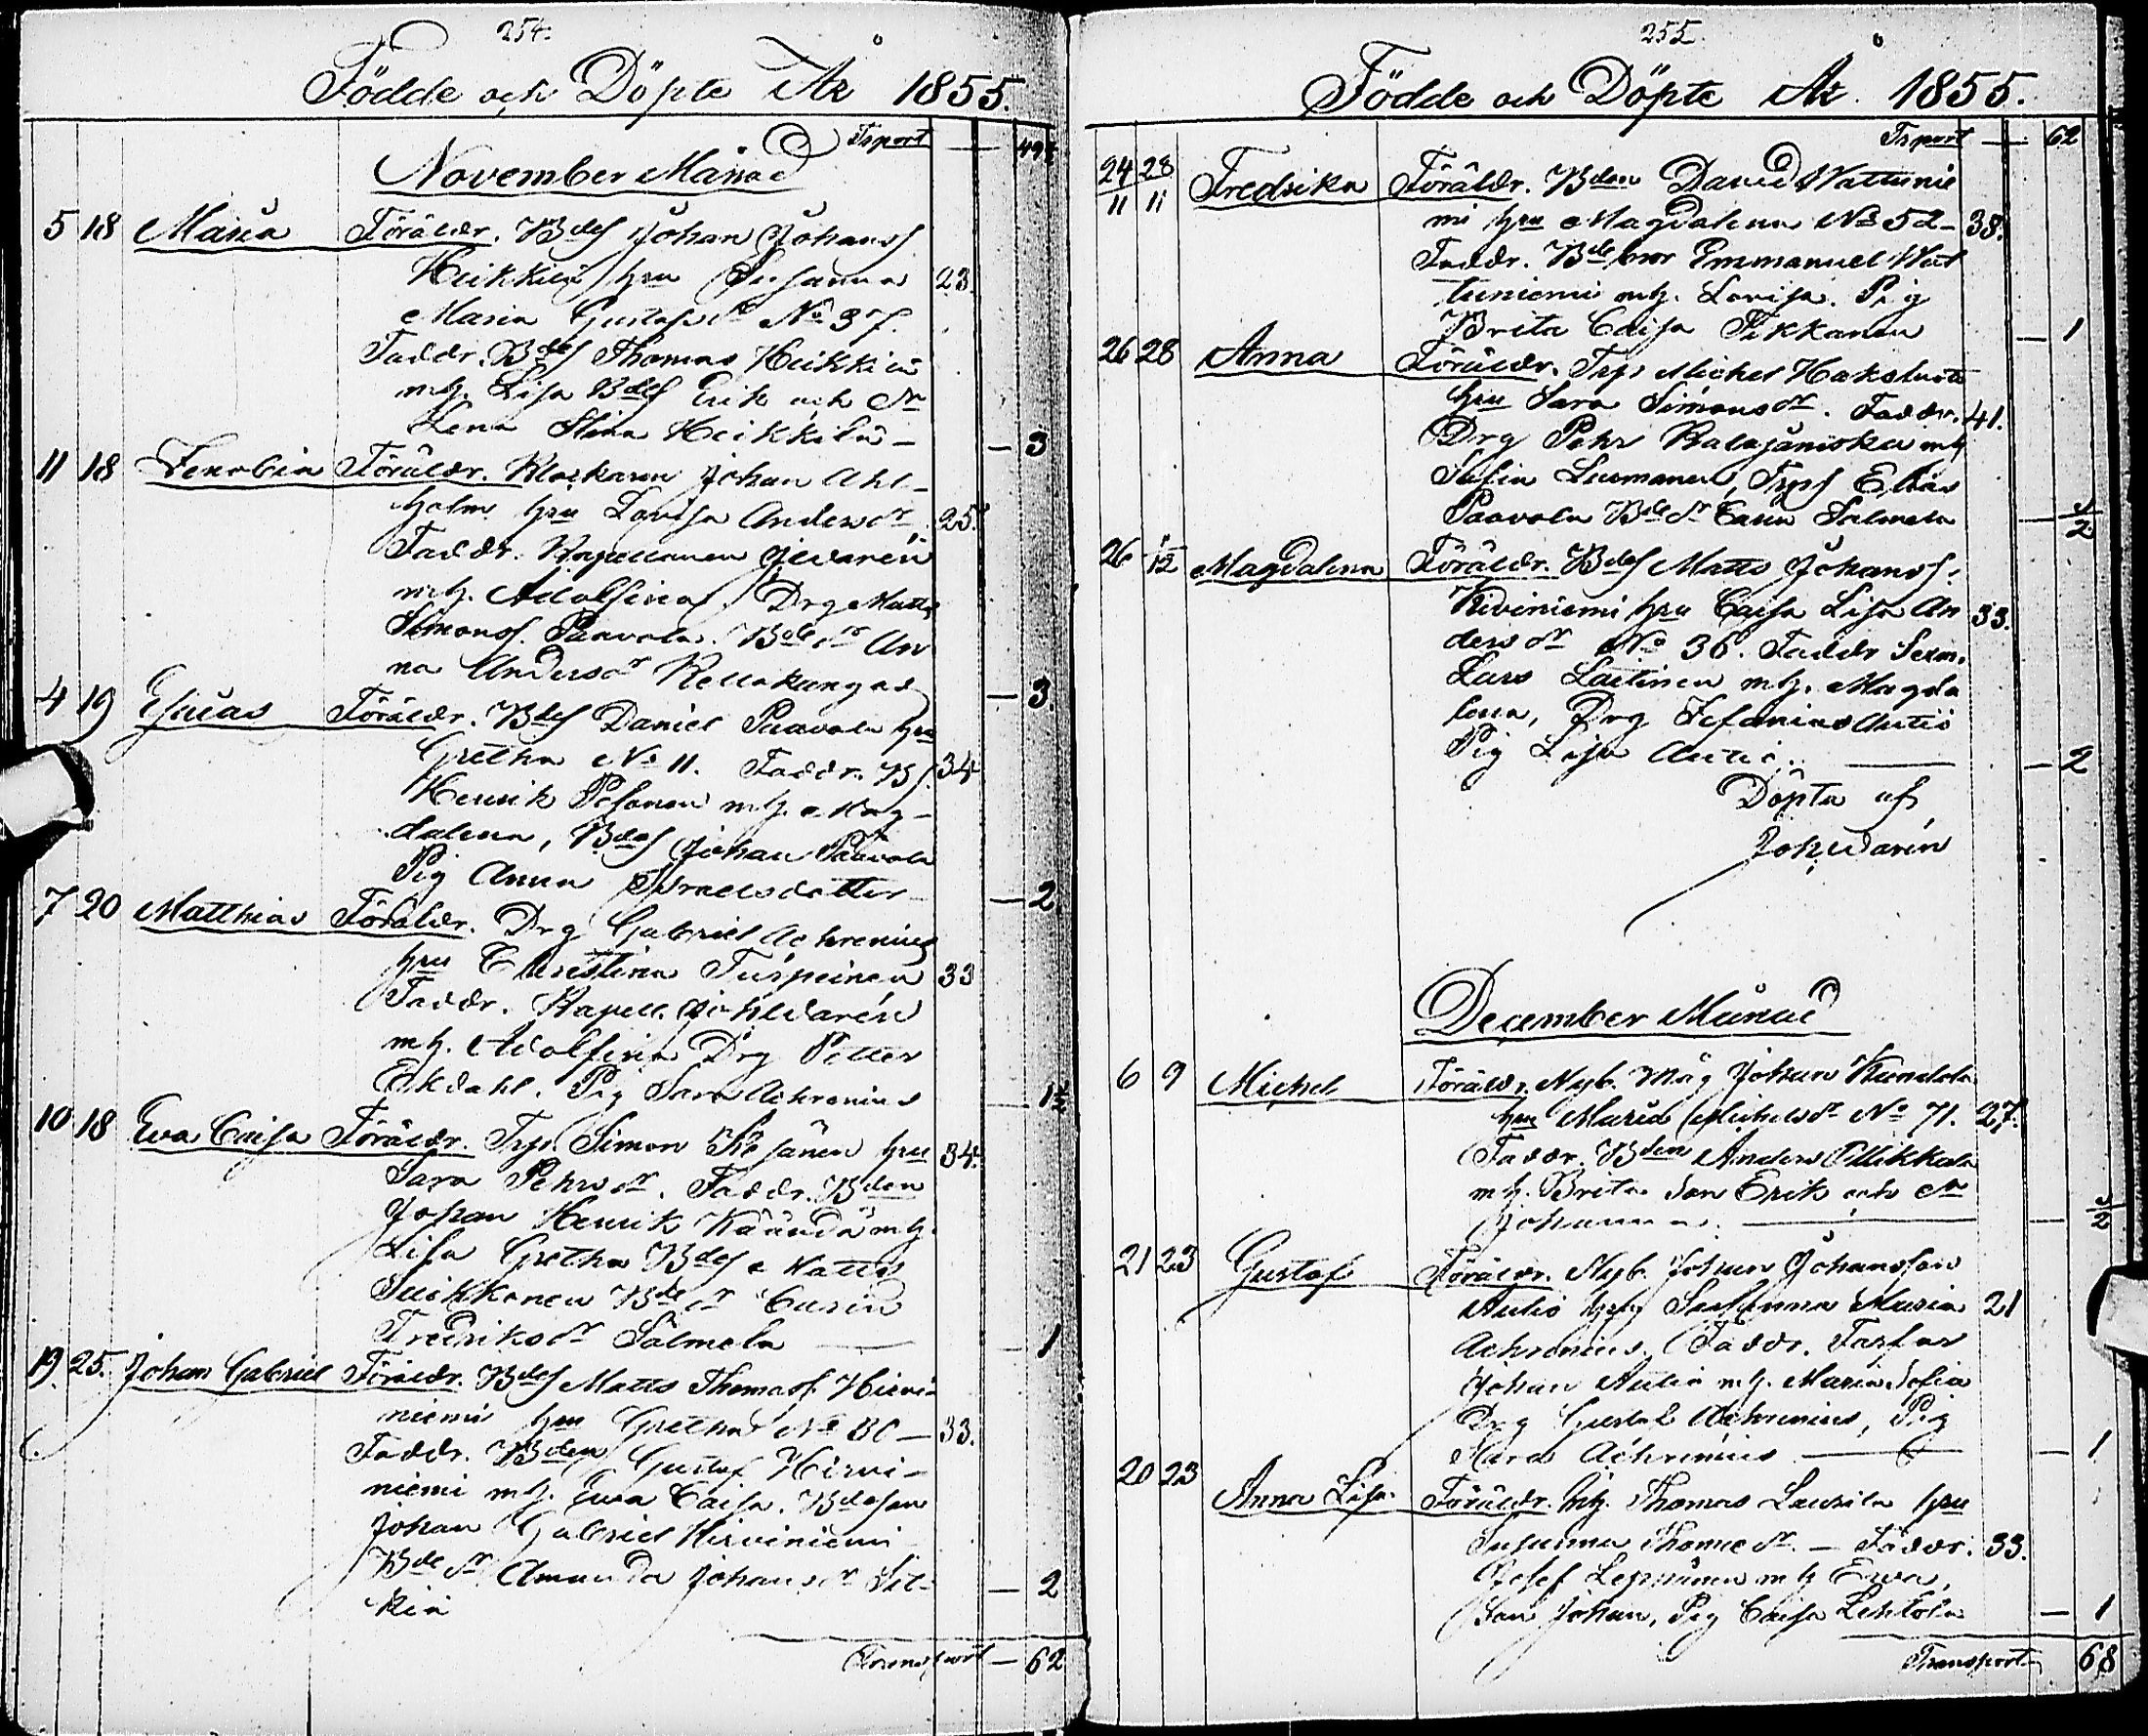 254.
Födde och Döpte År 1855.
Tsport — 49
November Månad
5 18 Maria Föräldr. Bdes Johan Johans
Heikkilä hru Susanna 23.
Maria Gustafs dr No 37.
Faddr. Bdes Thomas Heikkilä
mh. Lisa Bdes Erik och dr
Lena Stina Heikkilä — 3
11 18 Zenobia Föräldr. Klockaren Johan Ahl-
holm hru Lovisa Anders dr 25.
Faddr. Kapellanen
mh. Adolfina, Drg Matts
Simons. Paavola. Bde dr An
na Anders dr Kellokangas — 3.
4 19 Esaias Föräldr. Bdes Daniel Paavola hru
Gretha No 11. Faddr. Bs. 34
Henrik Pesonen mh. Mag-
dalena, Bdes Johan Paavola
Pig Anna Israelsdotter — 2
7 20 Matthias Föräldr. Drg Gabriel Achrenius
hru Christina Turpeinen 33
Faddr. Kapell.
mh. Adolfina Drg Petter
Ekdahl. Pig Sara Achrenius 1 1/2
10 18 Eva Caisa Föräldr. Trp. Simon hru 34.
Sara Pehrs dr. Faddr. Bden
Johan Henrik Kääntä mh.
Lisa Gretha Bdes Matts
Suikkonen Bde dr Carin
Fredriks dr Salmela — 1
19. 25. Johan Gabriel Föräldr. Bdes Matts Thomas. Hirvi-
niemi hru Gretha No 30 — 33.
Faddr. Bden Gustaf Hirvi-
niemi mh. Eva Caisa. Bdeson
Johan Gabriel Hirviniemi
Bde dr Amanda Johans dr Sil- — 2
kiä
Transport — 62
255.
Födde och Döpte År 1855.
Tsport — 62
24/11 28/11 Fredrika Föräldr. Bden David Wattunie
mi hru Magdalena No 52 — 38.
Faddr. Bde bror Emmanuel Wat
tuniemi mh. Lovisa. Pig
Brita Caisa Tikkanen — 1
26 28 Anna Föräldr. Trp. Michel
hru Sara Simons dr. Faddr. 41.
Drg Pehr Kalajaniska mh
Sofia Luomanen, Trps Elias
Paavola Bde dr Carin Salmela — 1/2
26 1/12 Magdalena Föräldr. Bdes Matts Johans.
Kiviniemi hru Caisa Lisa An 33.
ders dr No 36. Faddr Sexm.
Lars Laitinen mh. Magda
lena, Drg Zefanias Autio
Pig Lisa Autio. — 2
Döpta af
December Månad
6 9 Michel Föräldr. Nyb. Måg Johan
hru Maria Michels dr No 71. 27.
Faddr. Bden Anders Pillikkala
mh. Brita Son Erik och dr
Johanna. — 1/2
21 23 Gustaf Föräldr. Nyb. Johan Johansson
Autio hru Susanna Maria 21
Achrenius. Faddr. Farfar
Johan Autio mh. Maria Sofia
Drg Gustaf Achrenius, Pig
Sara Achrenius — 1
20 23 Anna Lisa. Föräldr. Inh. Thomas Laurila hru
Susanna Thome dr. — Faddr. 33.
Josef Leppänen mh Ewa,
Son Johan, Pig Caisa Lehtola — 1
Transport 68